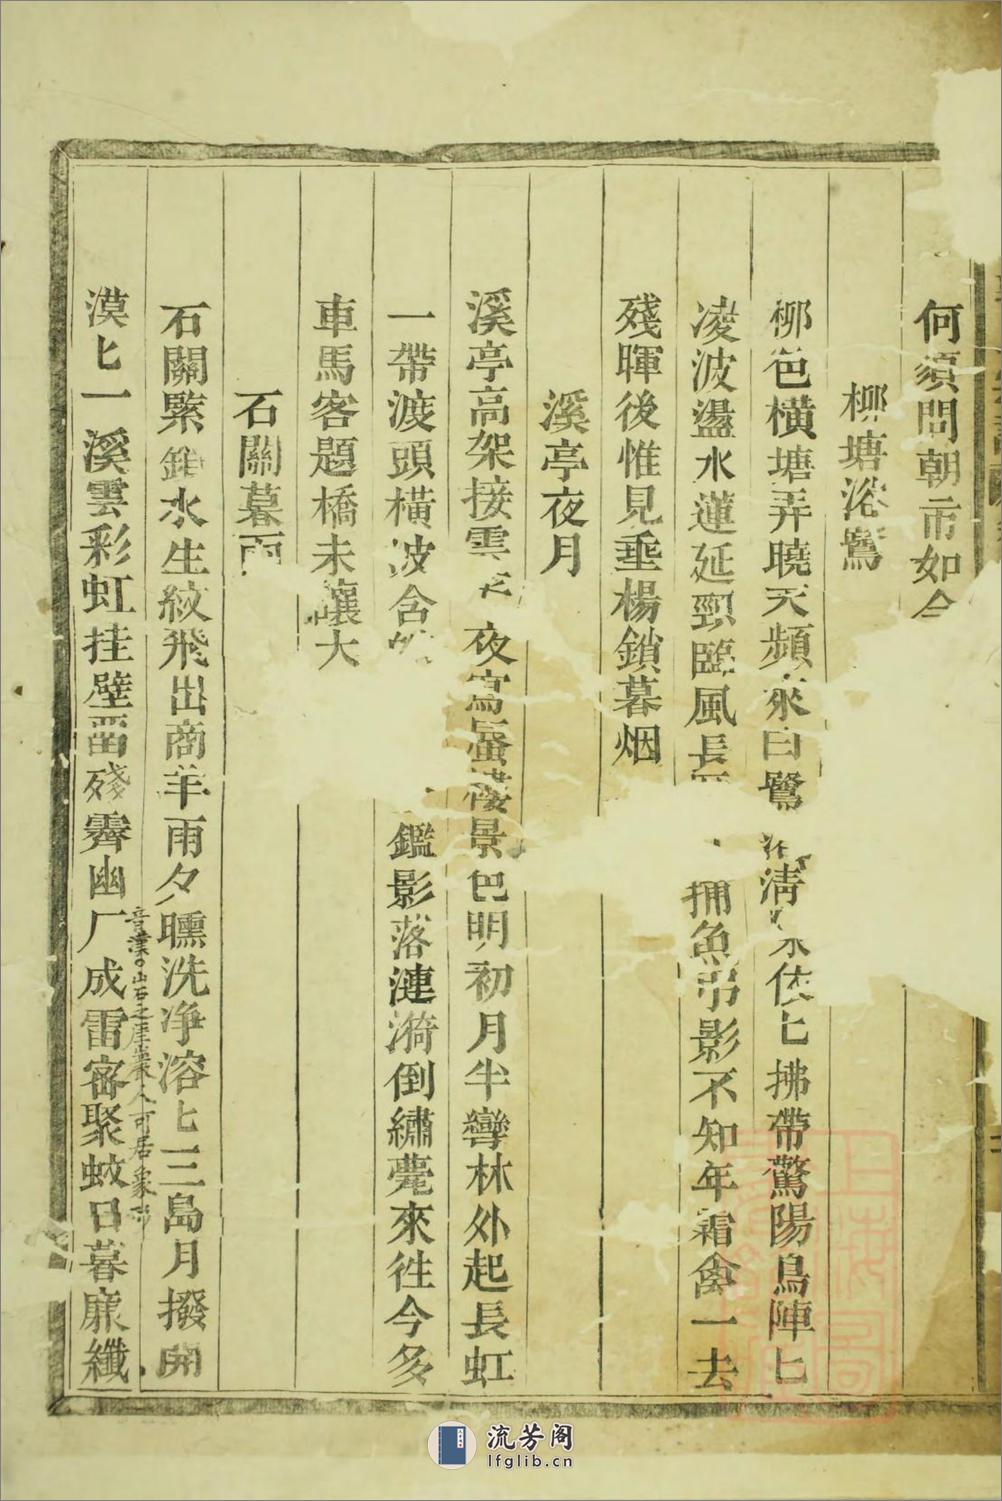 何須問朝市如今
柳塘浴鷺
柳色橫塘弄曉天頻來白鷺 清 依匕拂帶驚陽鳥陣匕
凌波盪水蓮延頸臨風長 捕魚吊影不知年霜禽一去
殘暉後惟見垂楊鎖暮烟
溪亭夜月
溪亭高架接雲 夜寫蜃樓景色明初月半彎林外起長虹
一帶渡頭橫波含 鑑影落漣漪倒繡甍來徃今多
車馬客題橋未讓大
石關暮雨
石關緊鎖水生紋飛出商羊雨夕曛洗净溶匕三島月撥開
漠匕一溪雲彩虹挂壁畱殘霽幽厂成雷審聚蚊日暮廉纖
音漢 山石之厓巖人可居象形
流芳阁
lfglib.cn